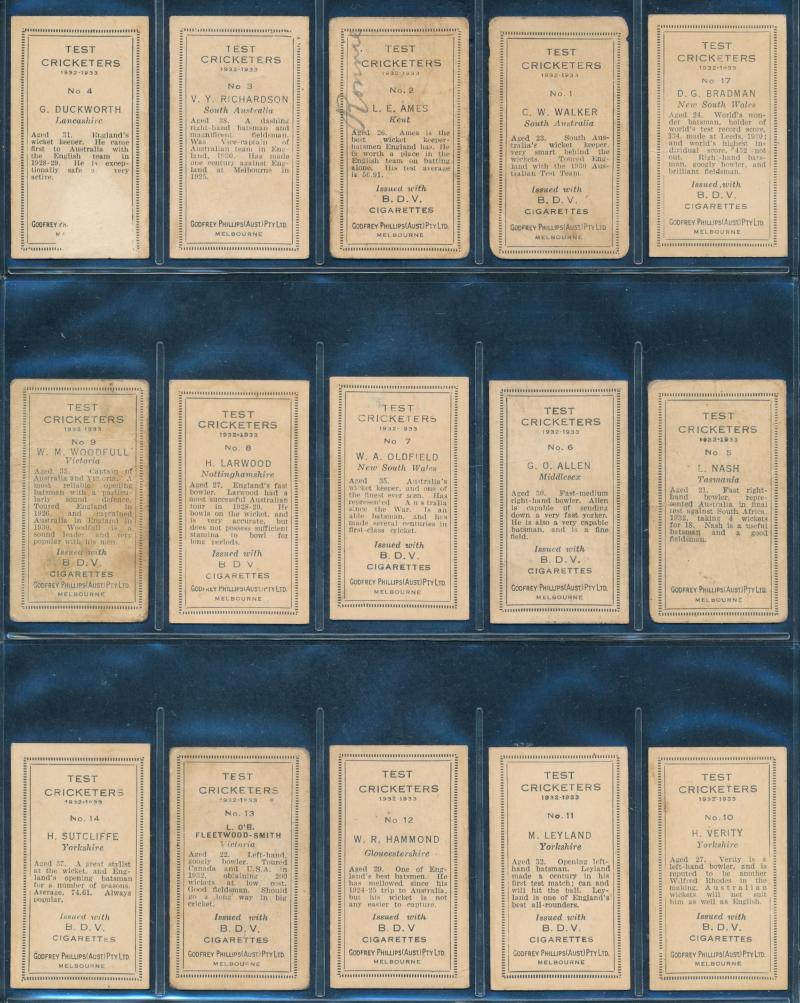 TEST
CRICKETERS
1932-1933
No 4
G. DUCKWORTH
Lancashire
Aged 31. England's
wicket keeper. He came
first to Australia with
the English team in
1928-29. He is excep-
tionally safe very
active.
GODFREY PH
TEST
CRICKETERS
1932-1933
No 3
V. Y. RICHARDSON
South Australia
Aged 38. A dashing
right-hand batsman and
magnificent fieldsman.
Was Vice-captain of
Australian team in Eng-
land, 1930. Has made
one century against Eng-
land at Melbourne in
1925.
GODFREY PHILLIPS(AUST)PTY LTD.
MELBOURNE
TEST
CRICKETERS
1932 1933
No. 2
L. E. AMES
Kent
Aged 26. Ames is the
best wicket keeper-
batsmen England has. He
is worth a place in the
English team on batting
alone. His test average
is 56.91.
Issued with
B. D. V.
CIGARETTES
GODFREY PHILLIPS(AUST)PTY LTD.
MELBOURNE
TEST
CRICKETERS
1932-1933
No. 1
C. W. WALKER
South Australia
Aged 23. South Aus-
tralia's wicket keeper,
very smart behind the
wickets. Toured Eng-
land with the 1930 Aus-
tralian Test Team.
Issued with
B. D. V.
CIGARETTES
GODFREY PHILLIPS(AUST)PTY LTD.
MELBOURNE
TEST
CRICKETERS
1932-1933
No 17
D. G. BRADMAN
New South Wales
Aged 24. World's won-
der batsman, holder of
world's test record score,
334, made at Leeds, 1930;
and world's highest in-
dividual score, 452 not
out. Right-hand bats-
man, googly bowler, and
brilliant fieldsman.
Issued with
B. D. V.
CIGARETTES
GODFREY PHILLIPS(AUST)PTY LTD.
MELBOURNE
TEST
CRICKETERS
1932 1933
No 9
W. M. WOODFULL
Victoria
Aged 35. Captain of
Australia and Victoria. A
most reliable opening
batsman with a particu-
larly sound defence.
Toured England in
1926, and captained
Australia in England in
1930. Woodfull is a
sound leader and very
popular with his men.
Issued with
B. D. V.
CIGARETTES
GODFREY PHILLIPS(AUST)PTY LTD.
MELBOURNE
TEST
CRICKETERS
1932-1933
No. 8
H. LARWOOD
Nottinghamshire
Aged 27. England's fast
bowler. Larwood had a
most successful Australian
tour in 1928-29. He
bowls on the wicket, and
is very accurate, but
does not possess sufficient
stamina to bowl for
long periods.
Issued with
B D V
CIGARETTES
GODFREY PHILLIPS(AUST)PTY LTD.
MELBOURNE
TEST
CRICKETERS
1932- 933
No 7
W. A. OLDFIELD
New South Wales
Aged 35. Australia's
wicket keeper, and one of
the finest ever seen. Has
represented Australia
since the War. Is an
able batsman, and has
made several centuries in
first-class cricket.
Issued with
B. D. V.
CIGARETTES
GODFREY PHILLIPS(AUST)PTY LTD.
MELBOURNE
TEST
CRICKETERS
1932-1933
No. 6
G. O. ALLEN
Middlesex
Aged 30. Fast-medium
right-hand bowler. Allen
is capable of sending
down a very fast yorker.
He is also a very capable
batsman, and is a fine
field.
Issued with
B. D. V.
CIGARETTES
GODFREY PHILLIPS(AUST)PTY LTD.
MELBOURNE
TEST
CRICKETERS
1932-1933
No 5
L. NASH
Tasmania
Aged 21. Fast right-
hand bowler, repre-
sented Australia in final
test against South Africa,
1932, taking 4 wickets
for 18. Nash is a useful
batsman and a good
fieldsman.
GODFREY PHILLIPS(AUST)PTY LTD.
MELBOURNE
TEST
CRICKETERS
1932-1933
No. 14
H. SUTCLIFFE
Yorkshire
Aged 37. A great stylist
at the wicket, and Eng-
land's opening batsman
for a number of seasons.
Average, 74.61. Always
popular.
Issued with
B. D. V.
CIGARETTES
GODFREY PHILLIPS(AUST)PTY LTD.
MELBOURNE
TEST
CRICKETERS
1932-1933
No. 13
L. O'B.
FLEETWOOD-SMITH
Victoria
Aged 22. Left-hand,
googly bowler. Toured
Canada and U.S.A. in
1932, obtaining 200
wickets at low cost.
Good fieldsman. Should
go a long way in big
cricket.
Issued with
B. D. V.
CIGARETTES
GODFREY PHILLIPS(AUST)PTY LTD.
MELBOURNE
TEST
CRICKETERS
1932 1933
No 12
W. R. HAMMOND
Gloucestershire
Aged 29. One of Eng-
land's best batsmen. He
has mellowed since his
1924-25 trip to Australia,
but his wicket is not
any easier to capture.
Issued with
B. D. V
CIGARETTES
GODFREY PHILLIPS(AUST)PTY LTD.
MELBOURNE
TEST
CRICKETERS
1932-1933
No. 11
M. LEYLAND
Yorkshire
Aged 32. Opening left-
hand batsman. Leyland
made a century in his
first test match; can and
will hit the ball. Ley-
land is one of England's
best all-rounders.
Issued with
B. D. V.
CIGARETTES
GODFREY PHILLIPS(AUST)PTY LTD.
MELBOURNE
TEST
CRICKETERS
1932-1933
No. 10
H. VERITY
Yorkshire
Aged 27. Verity is a
left-hand bowler, and is
reputed to be another
Wilfred Rhodes in the
making. Australian
wickets will not suit
him as well as English.
Issued with
B. D. V.
CIGARETTES
GODFREY PHILLIPS(AUST)PTY LTD.
MELBOURNE